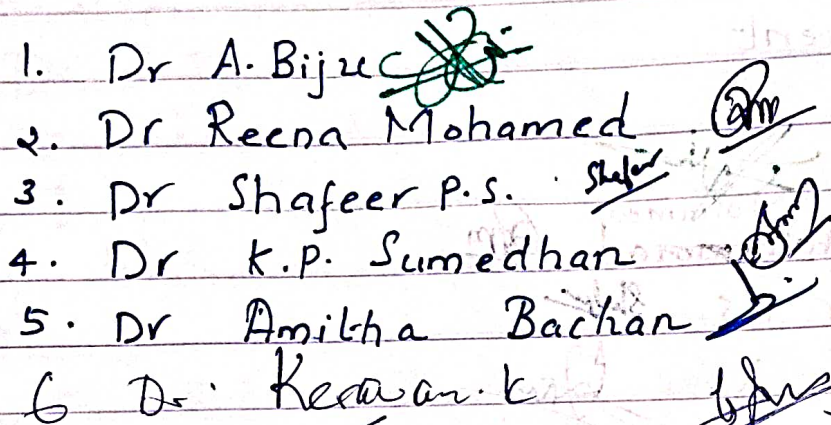 1. Dr A. Biju
2. Dr Reena Mohamed
3. Dr Shafeer P.S. Shafeer
4. Dr K.P. Sumedhan
5. Dr Amitha Bachan
6 Dr. Kesavan. K